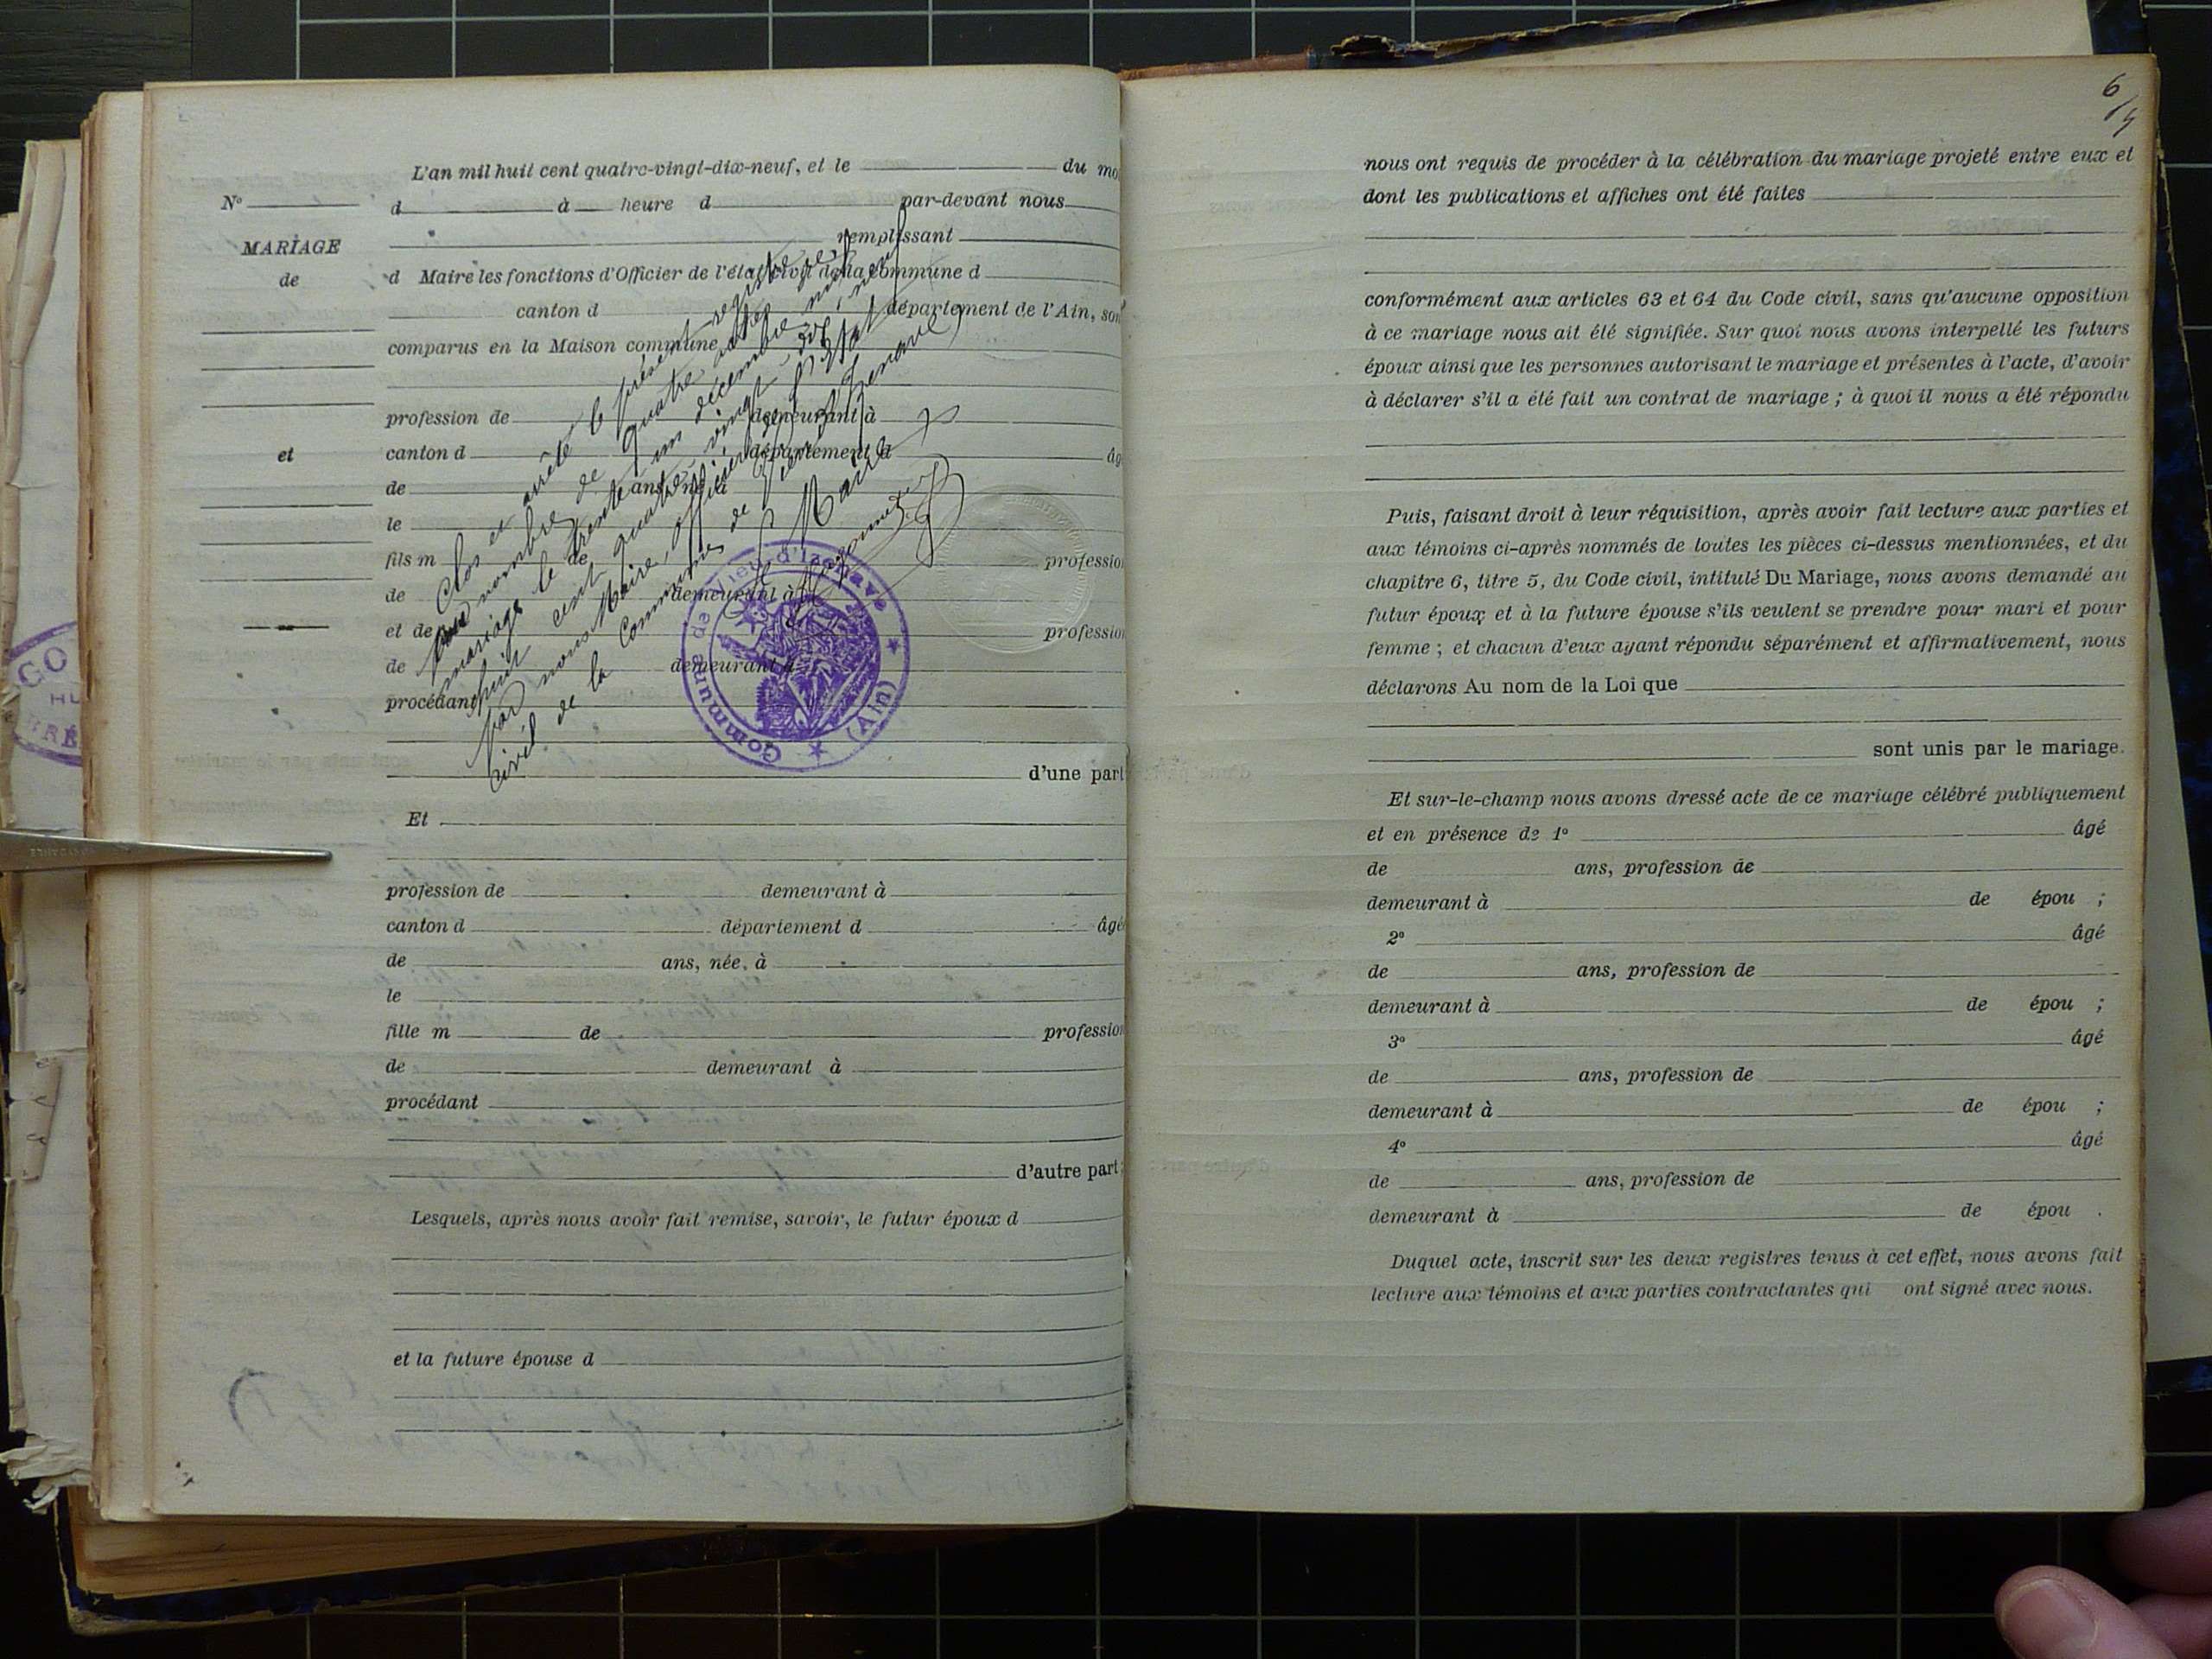 L'an mil huit cent quatre-vingt-dix-neuf, et le du mo
N° d à heure d par-devant nous
remplissant
MARIAGE
de
d Maire les fonctions d'Officier de l'état civil de la commune d
canton d département de l'Ain, son
comparus en la Maison commune
profession de demeurant à
et
canton d département d âg
de ans, né à
le
fils m de profession
de demeurant à
et de profession
de demeurant à
procédant
d'une part
Clos et arrêté le présent registre
au nombre de quatre actes de
mariage le trente un décembre mil
huit cent quatre vingt dix neuf
Par nous Maire, officier de l'Etat
civil de la Commune de Vieu d'Izenave
Le Maire
Commune de Vieu d'Izenave
(Ain)
Et
profession de demeurant à
canton d département d âgé
de ans, née, à
le
fille m de profession
de demeurant à
procédant
d'autre part;
Lesquels, après nous avoir fait remise, savoir, le futur époux d
et la future épouse d
6
nous ont requis de procéder à la célébration du mariage projeté entre eux et
dont les publications et affiches ont été faites
conformément aux articles 63 et 64 du Code civil, sans qu'aucune opposition
à ce mariage nous ait été signifiée. Sur quoi nous avons interpellé les futurs
époux ainsi que les personnes autorisant le mariage et présentes à l'acte, d'avoir
à déclarer s'il a été fait un contrat de mariage ; à quoi il nous a été répondu
Puis, faisant droit à leur réquisition, après avoir fait lecture aux parties et
aux témoins ci-après nommés de toutes les pièces ci-dessus mentionnées, et du
chapitre 6, titre 5, du Code civil, intitulé Du Mariage, nous avons demandé au
futur époux et à la future épouse s'ils veulent se prendre pour mari et pour
femme ; et chacun d'eux ayant répondu séparément et affirmativement, nous
déclarons Au nom de la Loi que
sont unis par le mariage.
Et sur-le-champ nous avons dressé acte de ce mariage célébré publiquement
et en présence de 1° âgé
de ans, profession de
demeurant à de épou ;
2° âgé
de ans, profession de
demeurant à de épou ;
3° âgé
de ans, profession de
demeurant à de épou ;
4° âgé
de ans, profession de
demeurant à de épou .
Duquel acte, inscrit sur les deux registres tenus à cet effet, nous avons fait
lecture aux témoins et aux parties contractantes qui ont signé avec nous.